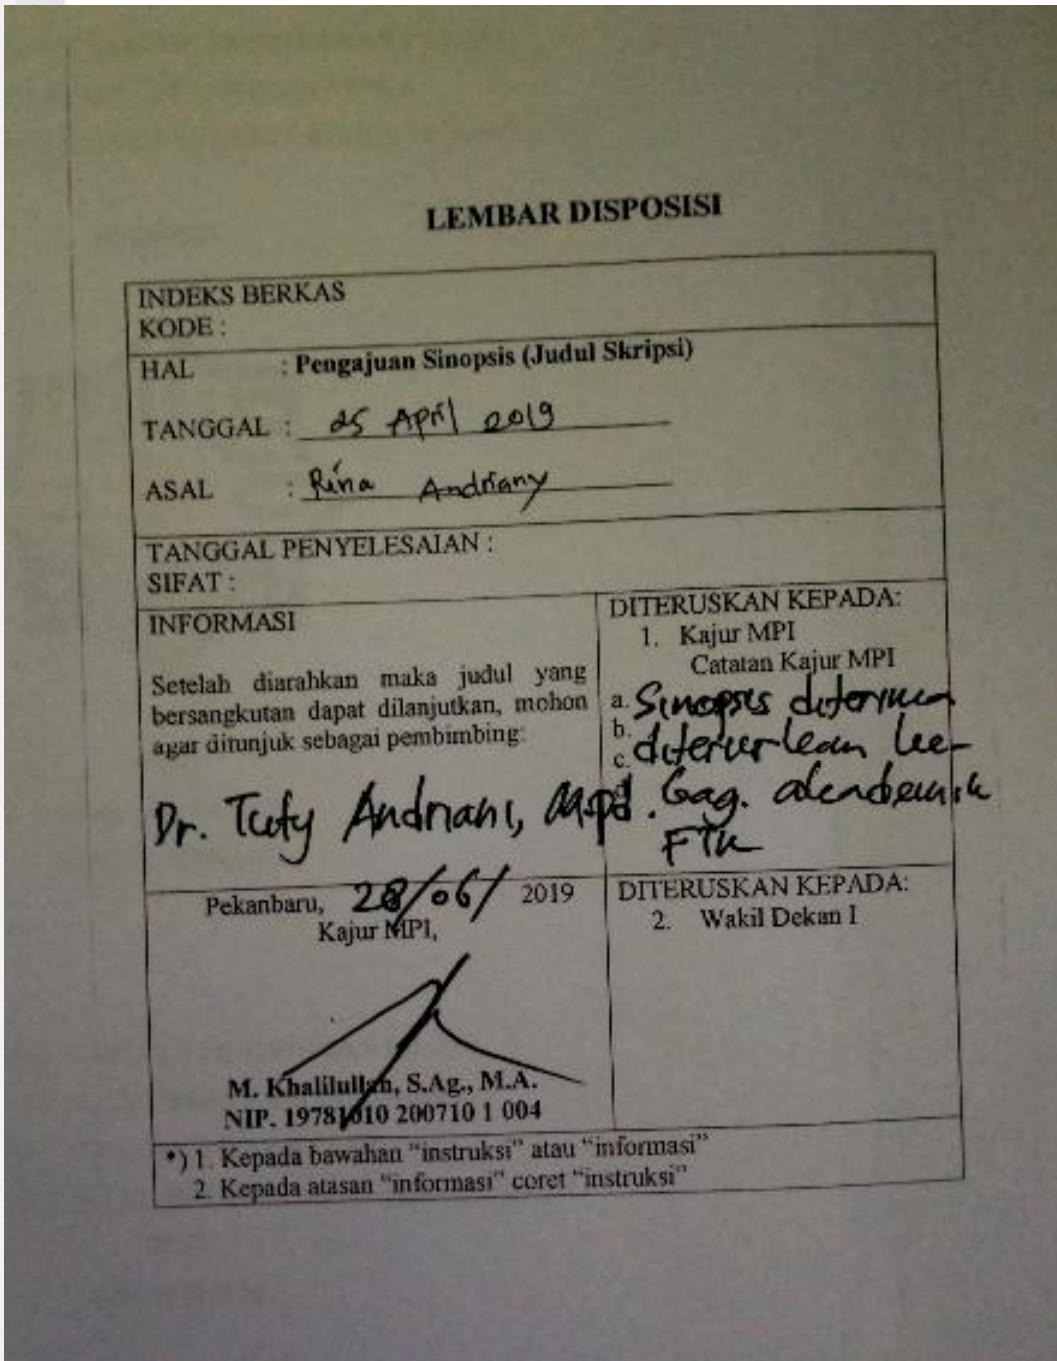 LEMBAR DISPOSISI
INDEKS BERKAS
KODE :
HAL : Pengajuan Sinopsis (Judul Skripsi)
TANGGAL : 25 April 2019
ASAL : Rina Andriany
TANGGAL PENYELESAIAN :
SIFAT :
INFORMASI
Setelah diarahkan maka judul yang
bersangkutan dapat dilanjutkan, mohon
agar ditunjuk sebagai pembimbing:
Dr. Tuty Andriani, M.pd.
DITERUSKAN KEPADA:
1. Kajur MPI
Catatan Kajur MPI
a. Sinopsis diterima
b.
c. diteruskan ke
Bag. akademik
FTK
Pekanbaru, 28/06/ 2019
Kajur MPI,
M. Khalilullah, S.Ag., M.A.
NIP. 19781010 200710 1 004
DITERUSKAN KEPADA:
2. Wakil Dekan I
*) 1. Kepada bawahan “instruksi” atau “informasi”
2. Kepada atasan “informasi” coret “instruksi”